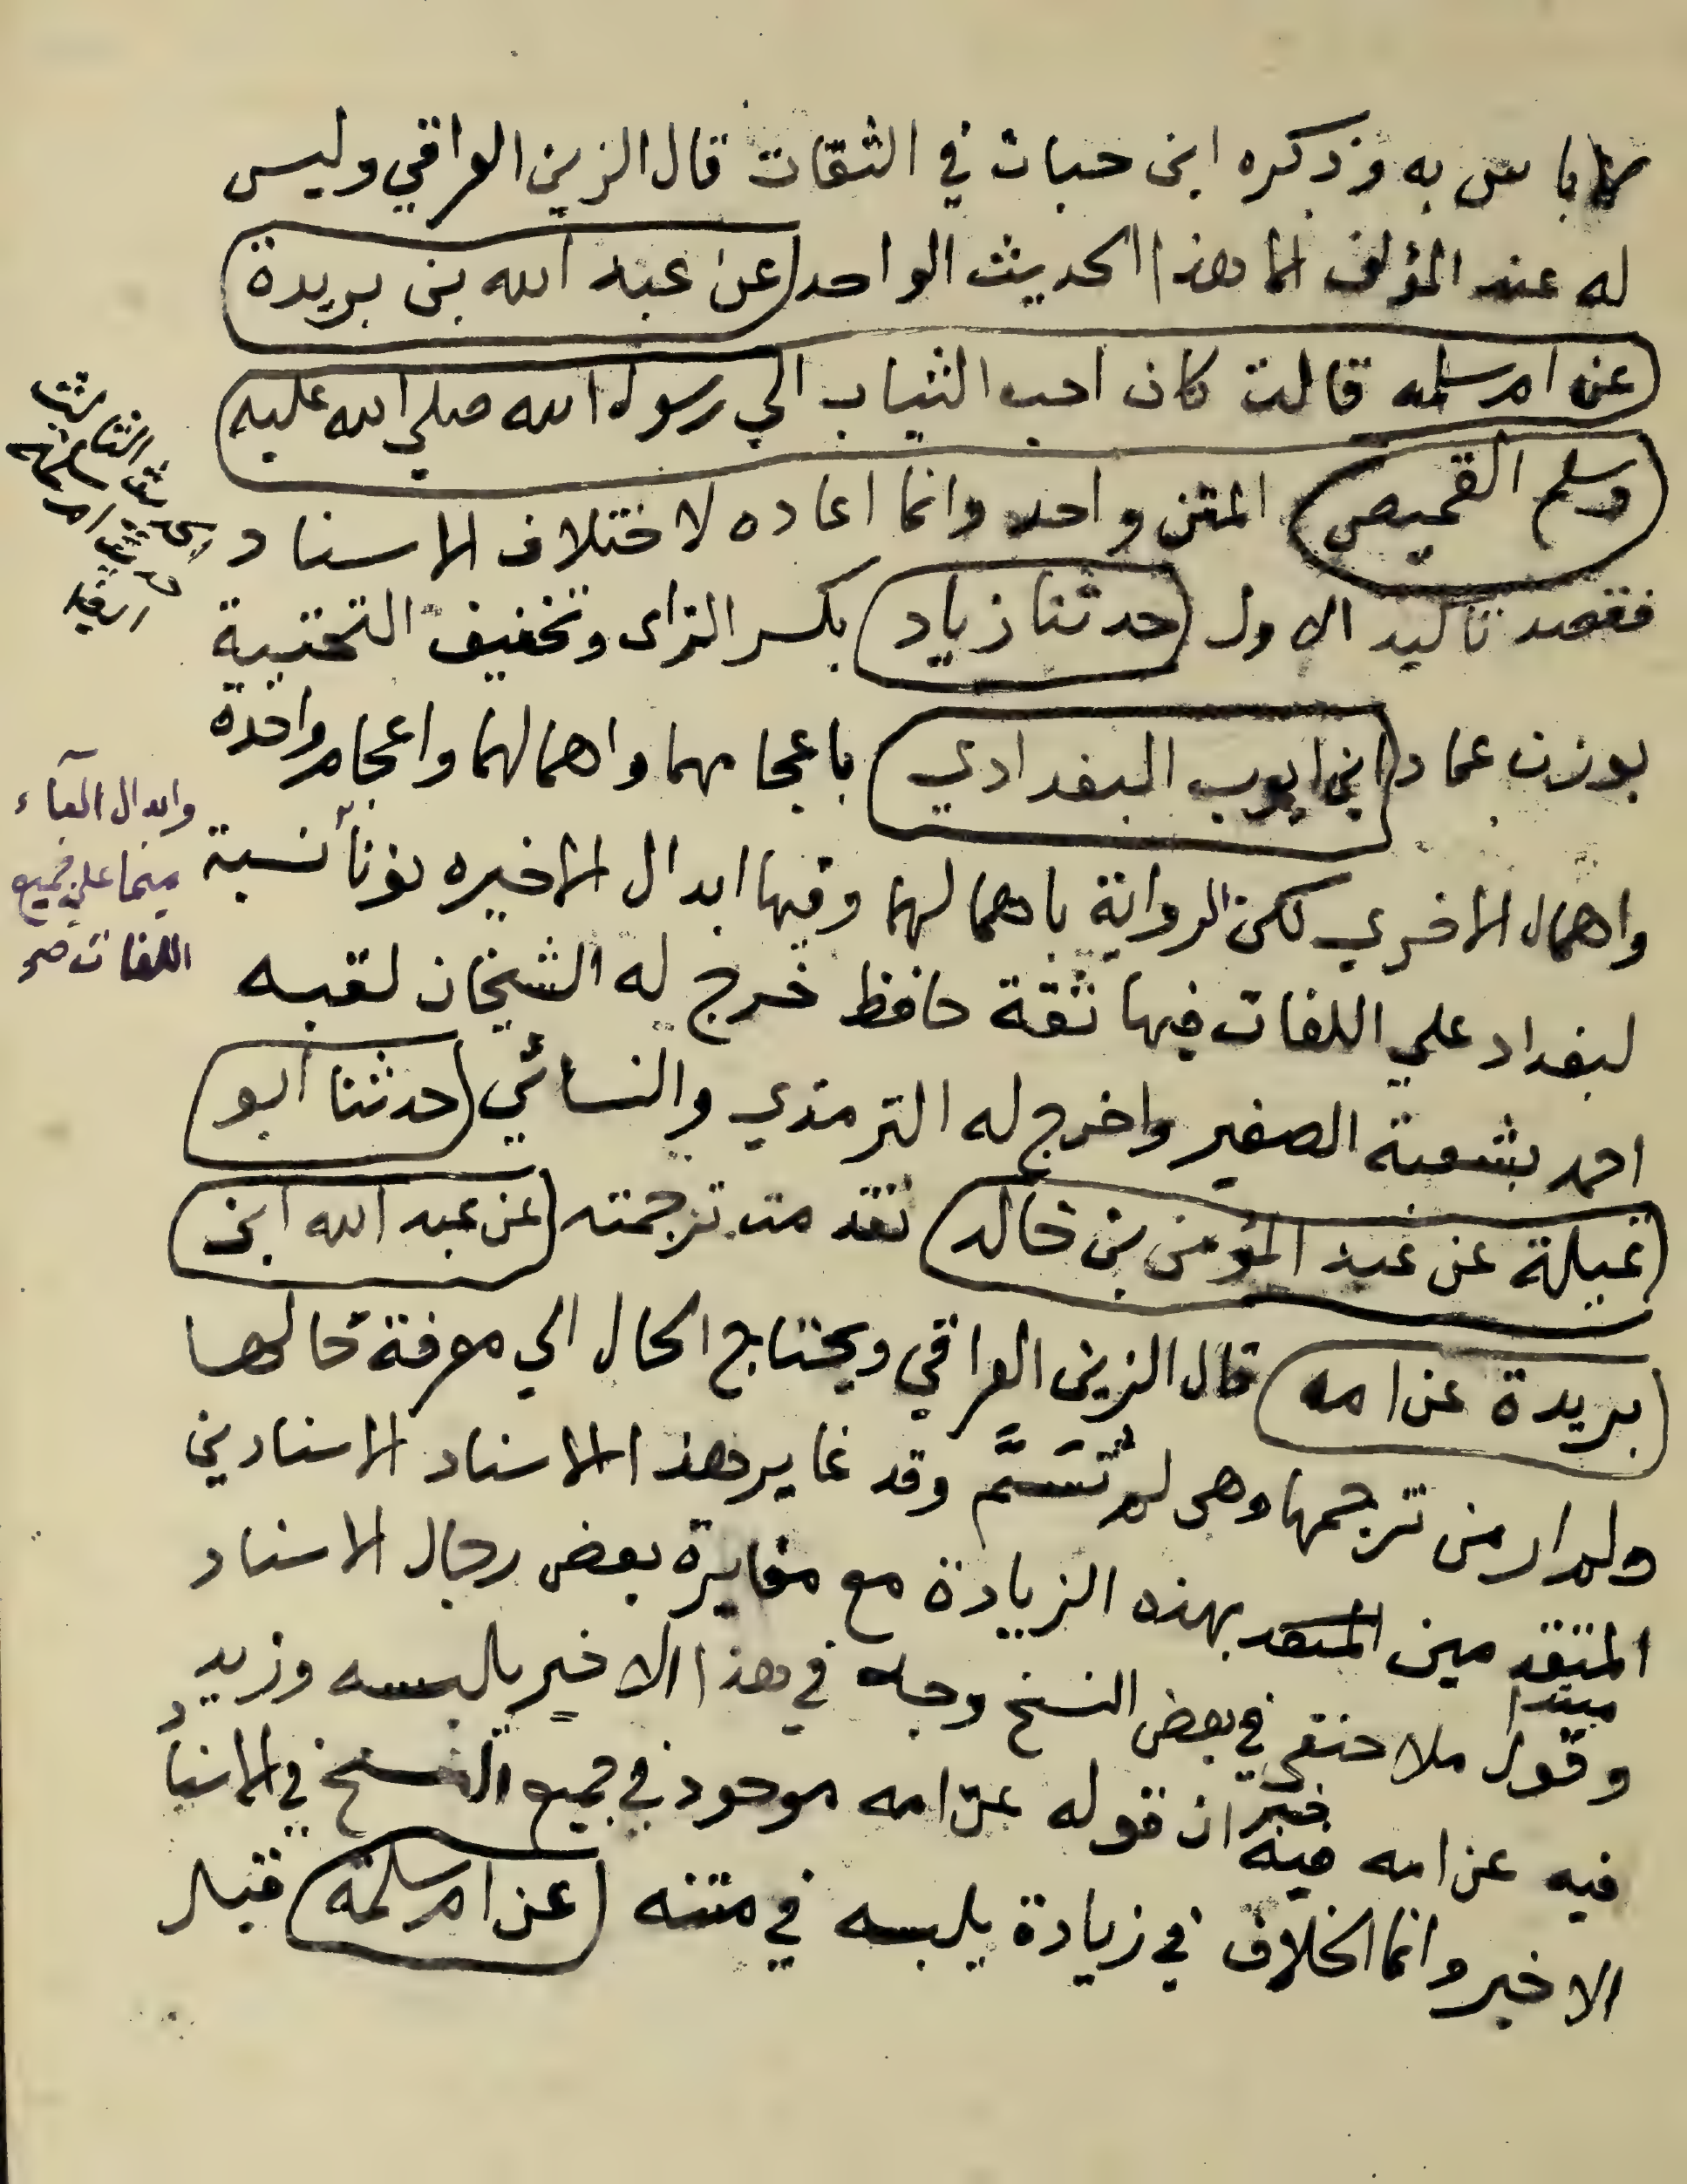 لا باس به وذكره ابن حبان في الثقات قال الزين العراقي وليس
له عند المؤلف الا هذا الحديث الواحد (عن عبد الله بن بريدة
عن ام سلمه قالت كان احب الثياب الي رسول الله صلي الله عليه
وسلم القميص) المتن واحد وانما اعاده لاختلاف الاسناد
فقصد تاكيد الاول (حدثنا زياد) بكسر الزاى وتخفيف التحتية
بوزن عماد (ابن ايوب البغدادي) باعجامهما واهمالهما واعجام واحدة
واهمال الاخري لكن الرواية باهمالهما وفيها ابدال الاخيره نونا نسبة
لبغداد علي اللغات فيها ثقة حافظ خرج له الشيخان لقبه
احمد بشعبة الصغير واخرج له الترمذي والنسائي (حدثنا ابو
تميلة عن عبد المؤمن بن خالد) تقدمت ترجمته (عن عبد الله ابن
بريدة عن امه) قال الزين العراقي ويحتاج الحال الي معرفة حالها
ولم ار من ترجمها وهى لم تُسَمَّ وقد غاير هذا الاسناد الاسنادين
المتقدمين بهذه الزيادة مع مغايرة بعض رجال الاسناد
مبتدا
وقول ملا حنفي في بعض النسخ وجد في هذا الاخير يلبسه وزيد
فيه عن امه فيه ان قوله عن امه موجود في جميع النسخ في الاسناد
خبر
الاخير وانما الخلاف في زيادة يلبسه في متنه (عن ام سلمة) قبل
الحديث الثالث
حديث ام سلمة
ايضا
وابدال الياء
ميما علي جميع
اللغات صح